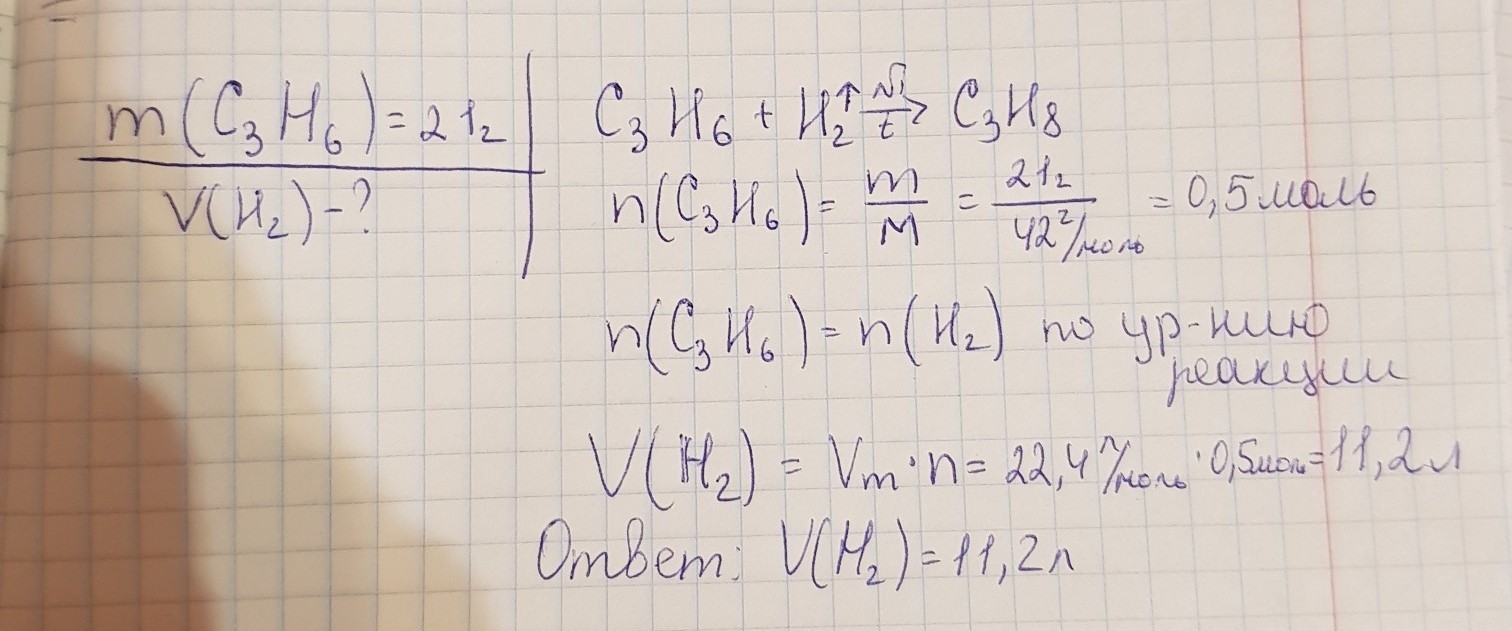 m(C₃H₆) = 21г
V(H₂) - ?
C₃H₆ + H₂↑ →(Ni, t) C₃H₈
n(C₃H₆) = m/M = 21г / 42 г/моль = 0,5 моль
n(C₃H₆) = n(H₂) по ур-нию
реакции
V(H₂) = Vm · n = 22,4 л/моль · 0,5 моль = 11,2 л
Ответ: V(H₂) = 11,2 л